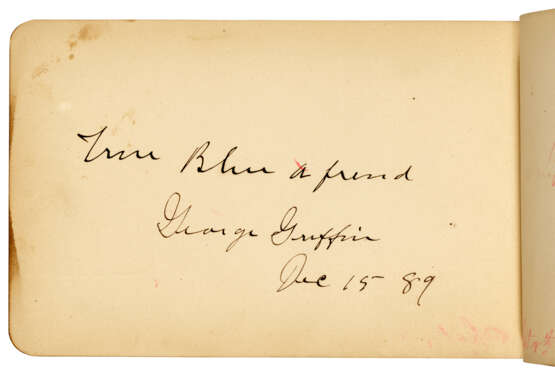 True Blue a friend
George Griffin
Dec 15 89